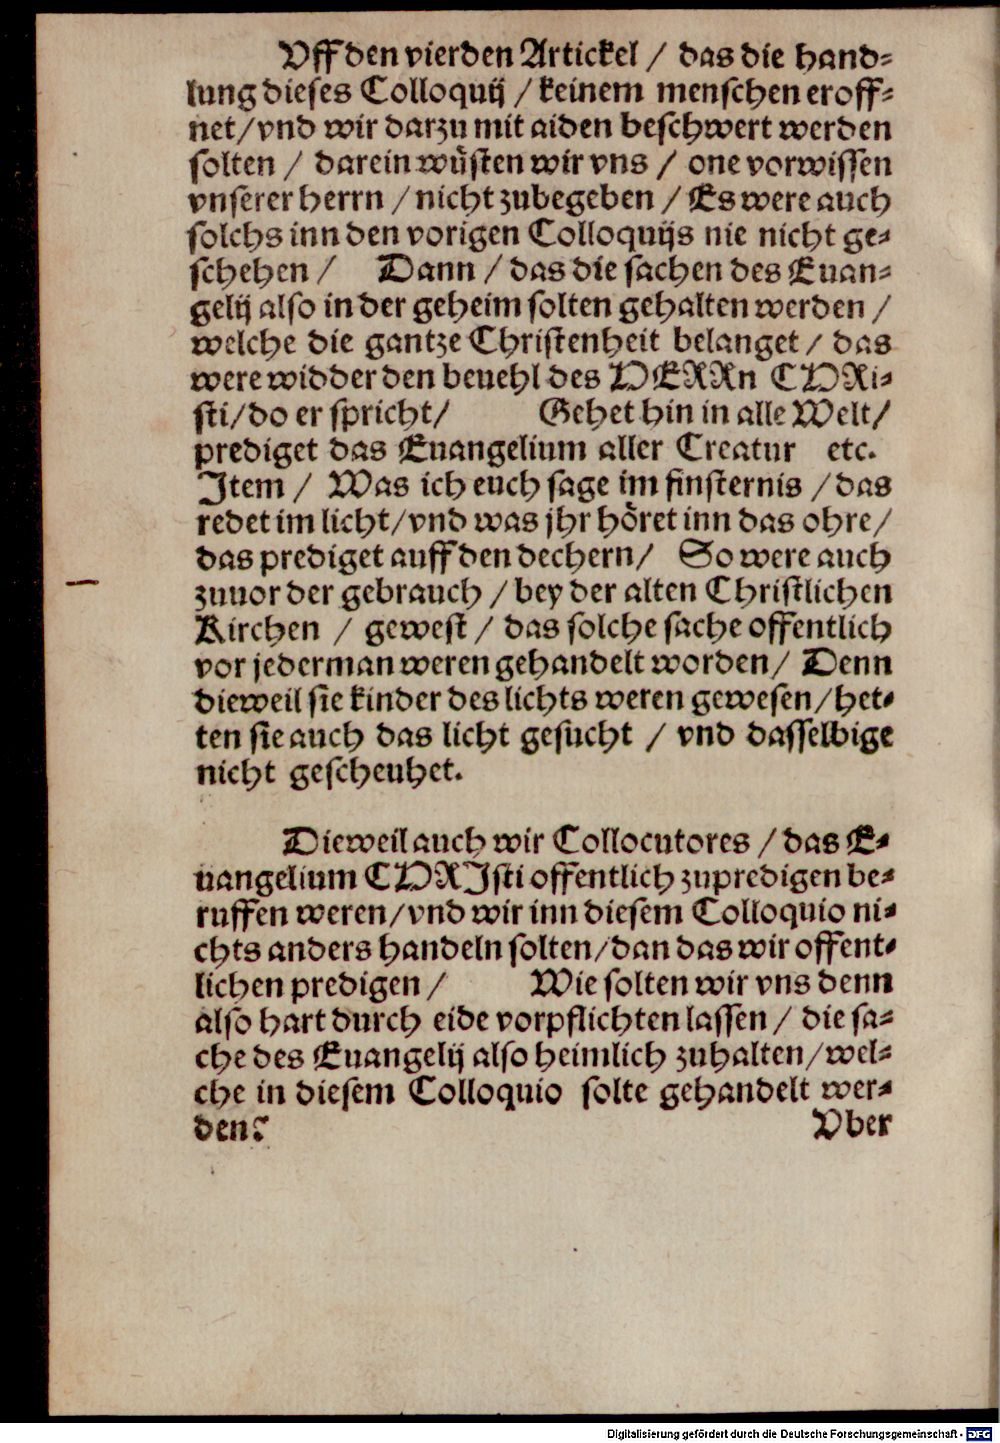 Vff den vierden Artickel / das die hand⸗
lung dieses Colloquij / keinem menschen eroff⸗
net/vnd wir darzu mit aiden beschwert werden
solten / darein wüsten wir vns / one vorwissen
vnserer herrn / nicht zubegeben / Es were auch
solchs inn den vorigen Colloquijs nie nicht ge⸗
schehen / Dann / das die sachen des Euan⸗
gelij also in der geheim solten gehalten werden /
welche die gantze Christenheit belanget / das
were widder den beuehl des HERRn CHRi⸗
sti/do er spricht/ Gehet hin in alle Welt/
prediget das Euangelium aller Creatur etc.
Item / Was ich euch sage im finsternis / das
redet im licht/vnd was jhr höret inn das ohre/
das prediget auff den dechern/ So were auch
zuuor der gebrauch / bey der alten Christlichen
Kirchen / gewest / das solche sache offentlich
vor jederman weren gehandelt worden/ Denn
dieweil sie kinder des lichts weren gewesen/het⸗
ten sie auch das licht gesucht / vnd dasselbige
nicht gescheuhet.
Dieweil auch wir Collocutores / das E⸗
uangelium CHRIsti offentlich zupredigen be⸗
ruffen weren/vnd wir inn diesem Colloquio ni⸗
chts anders handeln solten/dan das wir offent⸗
lichen predigen / Wie solten wir vns denn
also hart durch eide vorpflichten lassen / die sa⸗
che des Euangelij also heimlich zuhalten/wel⸗
che in diesem Colloquio solte gehandelt wer⸗
den? Vber
Digitalisierung gefördert durch die Deutsche Forschungsgemeinschaft - DFG